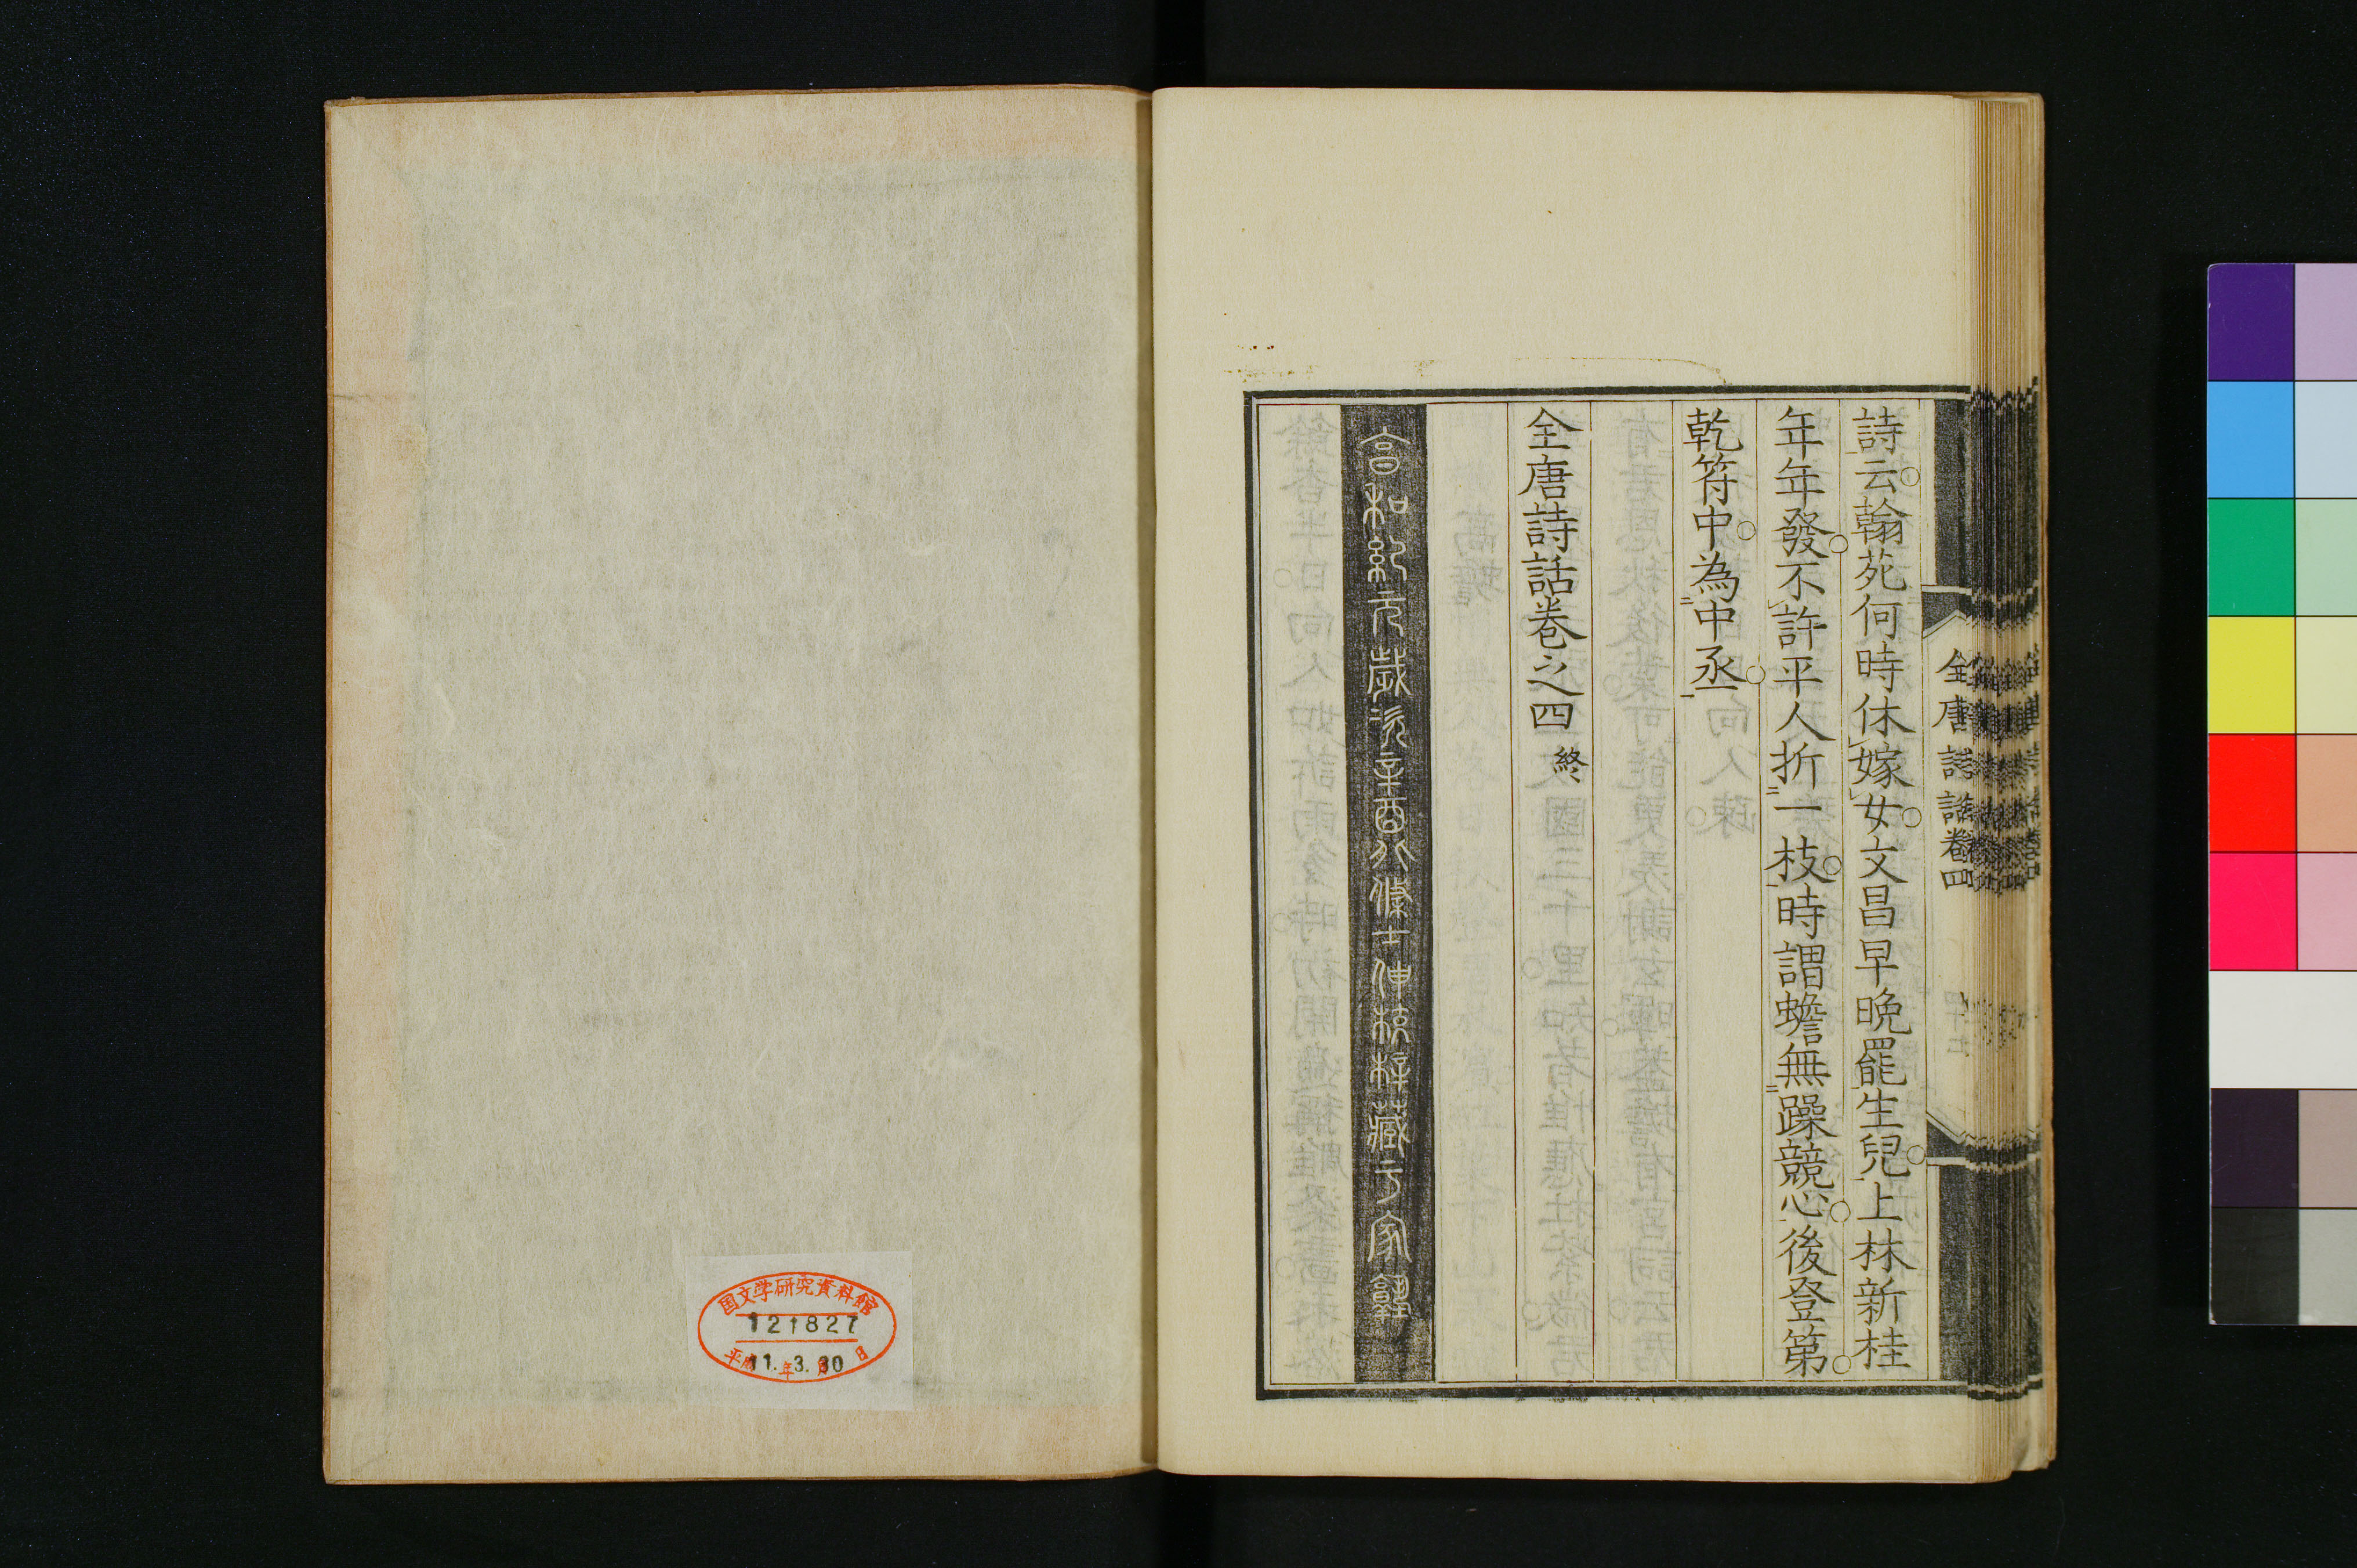 全唐詩話卷四
詩云翰苑何時休嫁女文昌早晚罷生兒上林新桂
年年發不許平人折一枝時謂蟾無躁競心後登第
乾符中為中丞
全唐詩話卷之四 終
享和紀元歲次辛酉 士伸校梓藏于家塾
国文学研究資料館
121827
平成 11. 年 3. 月 30 日